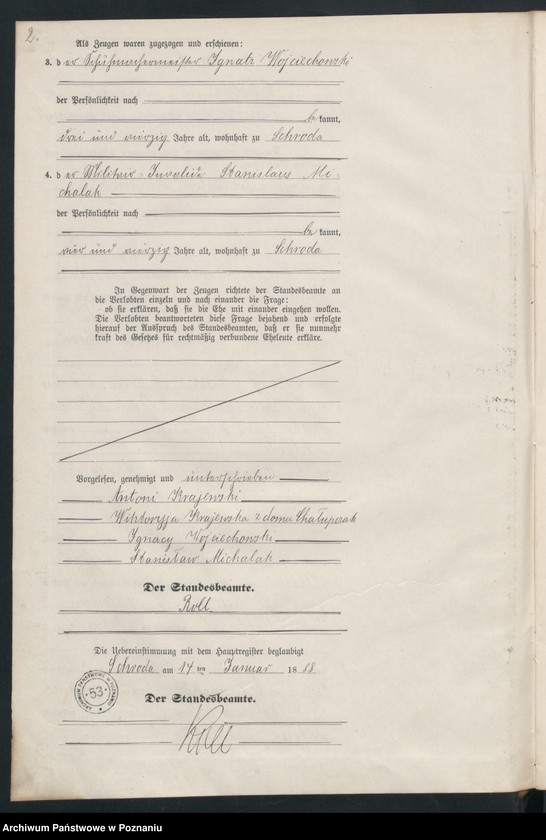 2.
Als Zeugen waren zugezogen und erschienen:
3. der Schuhmachermeister Ignatz Wojciechowski
der Persönlichkeit nach
bekannt,
drei und vierzig Jahre alt, wohnhaft zu Schroda
4. der Militair-Invalide Stanislaus Mi-
chalak
der Persönlichkeit nach
bekannt,
vier und vierzig Jahre alt, wohnhaft zu Schroda
In Gegenwart der Zeugen richtete der Standesbeamte an
die Verlobten einzeln und nach einander die Frage:
ob sie erklären, daß sie die Ehe mit einander eingehen wollen.
Die Verlobten beantworteten diese Frage bejahend und erfolgte
hierauf der Ausspruch des Standesbeamten, daß er sie nunmehr
kraft des Gesetzes für rechtmäßig verbundene Eheleute erkläre.
Vorgelesen, genehmigt und unterschrieben
Antoni Krajewski
Wiktoryja Krajewska z domu Chałuperak
Ignacy Wojciechowski
Stanisław Michalak
Der Standesbeamte.
Roll
Die Uebereinstimmung mit dem Hauptregister beglaubigt
Schroda am 14ten Januar 1888
ARCHIWUM PAŃSTWOWE W POZNANIU
53
Der Standesbeamte.
Roll
Archiwum Państwowe w Poznaniu